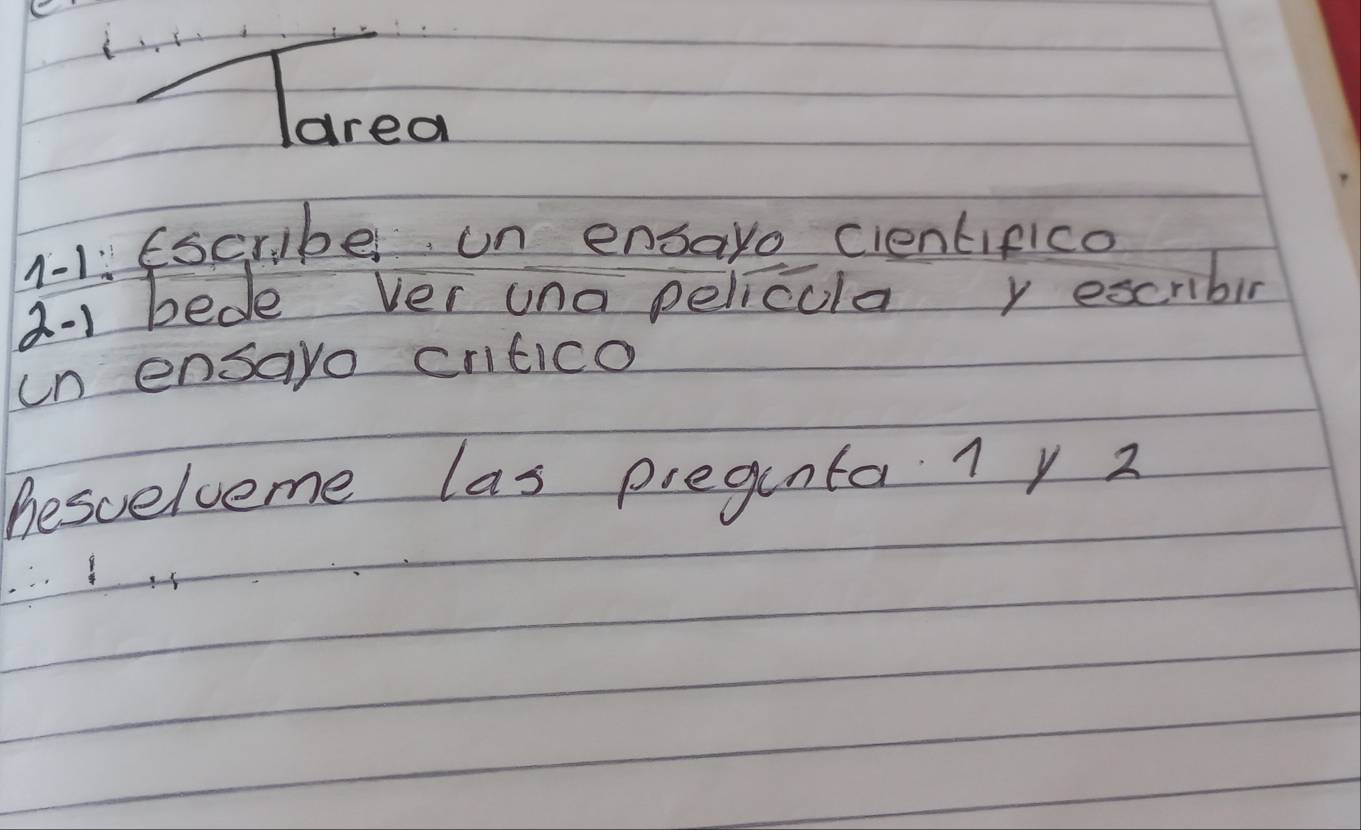 Tarea
1-1: Escribe un ensayo cientifico
2-1 bede ver una pelicula y escribir
un ensayo critico
Resuelveme las pregunta 1 y 2